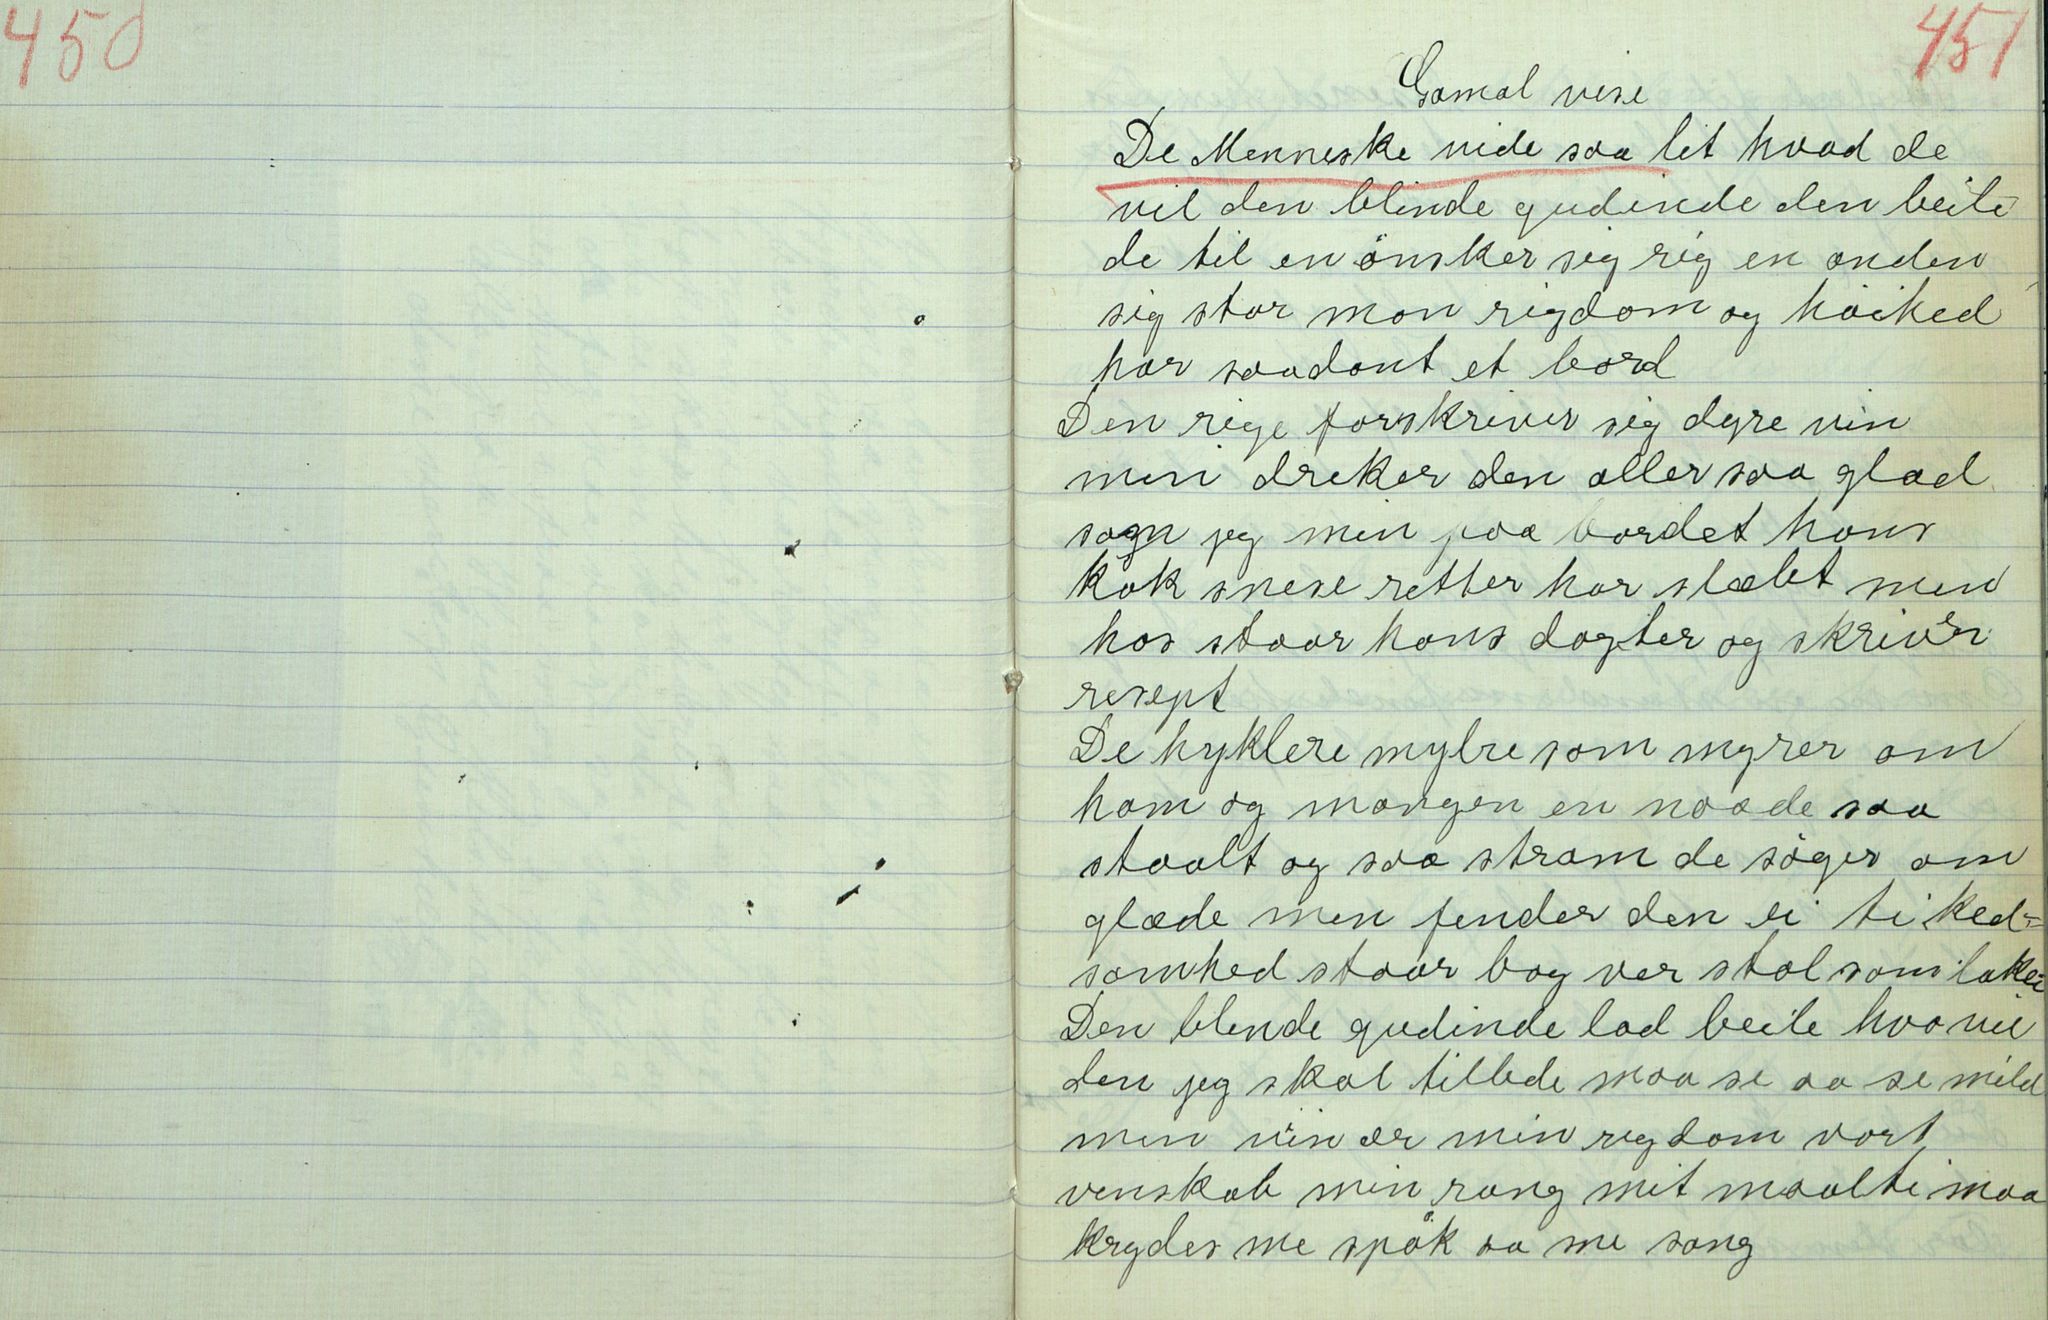 450
451
Gamal vise
De Menneske vide saa lit hvad de
vil den blinde gudinde den beile
de til en önsker sig rig en anden
sig stor mon rigdom og höihed
har saadant et bord
Den rige forskriver sig dyre vin
men dreker den aller saa glad
sogn jeg min paa bordet hans
kok snese retter har slæbt men
hos staar hans dogter og skriver
resept
De hyklere mylre som myrer om
ham og mangen en naade saa
staalt og saa stram de söger om
glæde men fender den ei ti ked=
somhed staar bag ver stol som lakei
Den blende gudinde lad beile hva vil
den jeg skal tilbede maa se aa se mild
men vin ær min rigdom vort
venskab min rang mit maalti maa
krydes me spök aa me sang